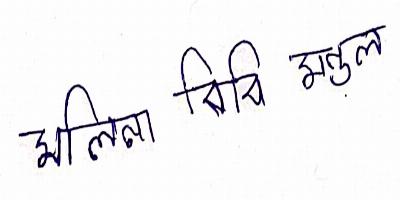 মলিনা বিবি মন্ডল